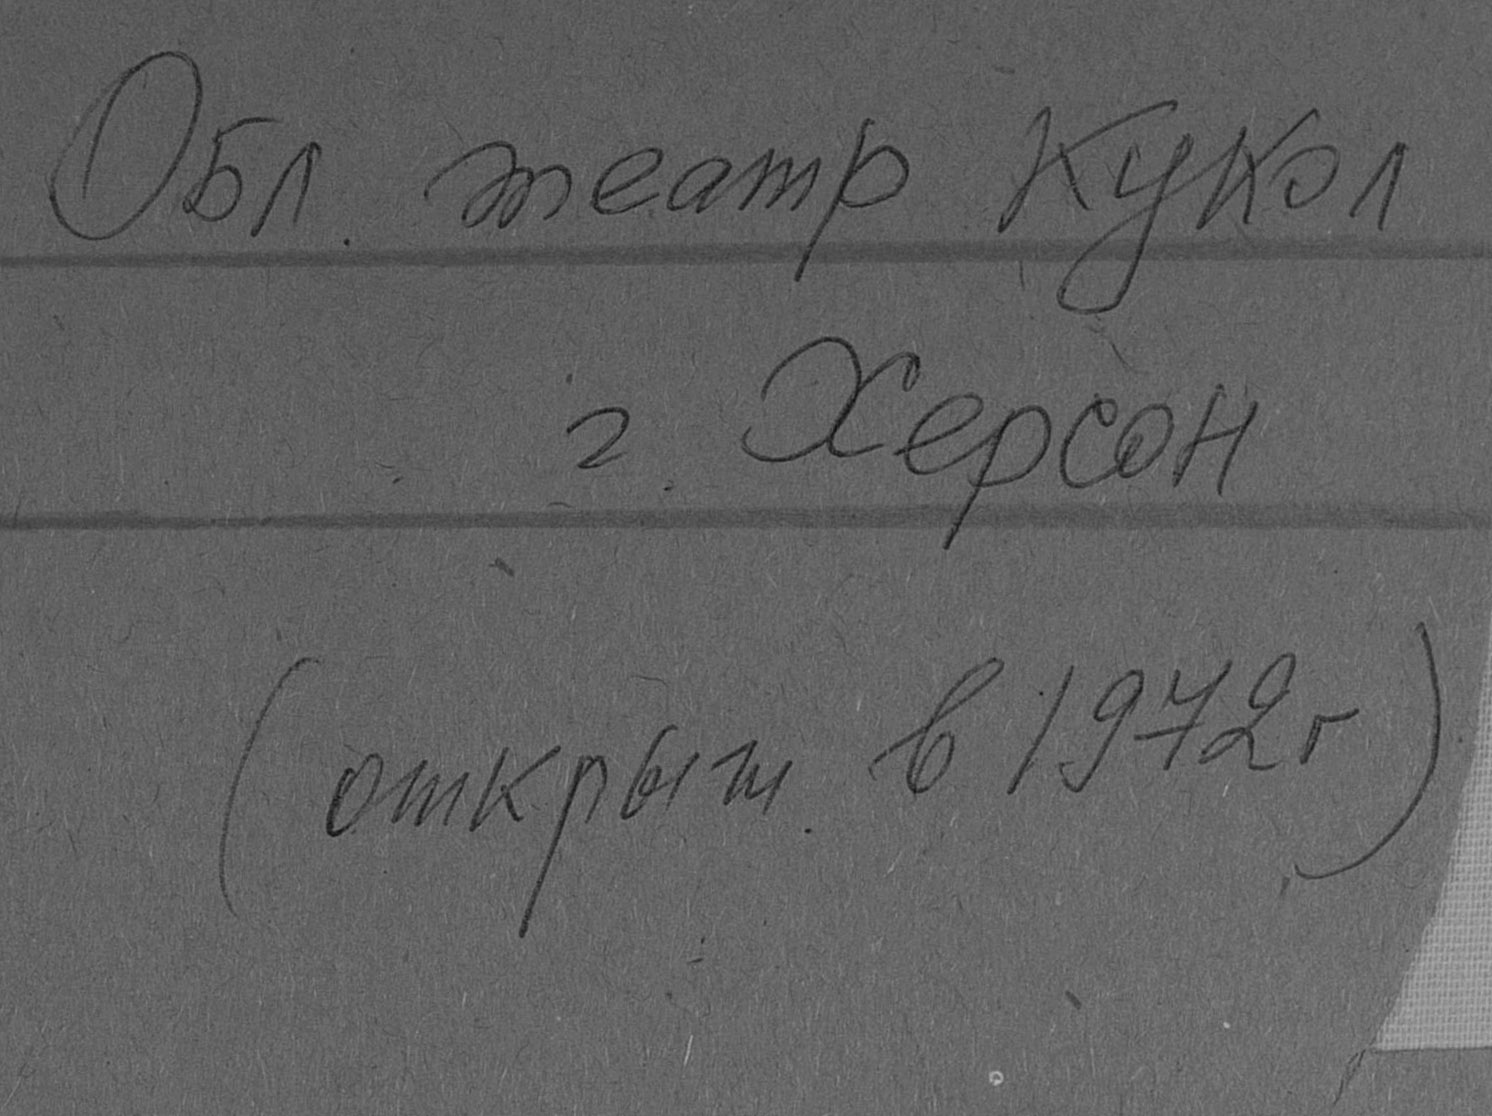 Обл. театр кукол
г. Херсон
(открыт. в 1972г)